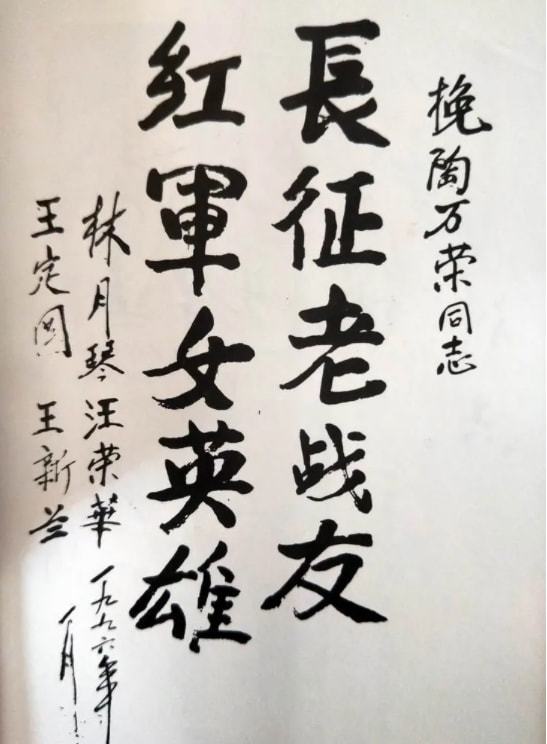 挽陶万荣同志
長征老战友
紅軍女英雄
林月琴汪荣華
王定国 王新兰
一九九六年
一月